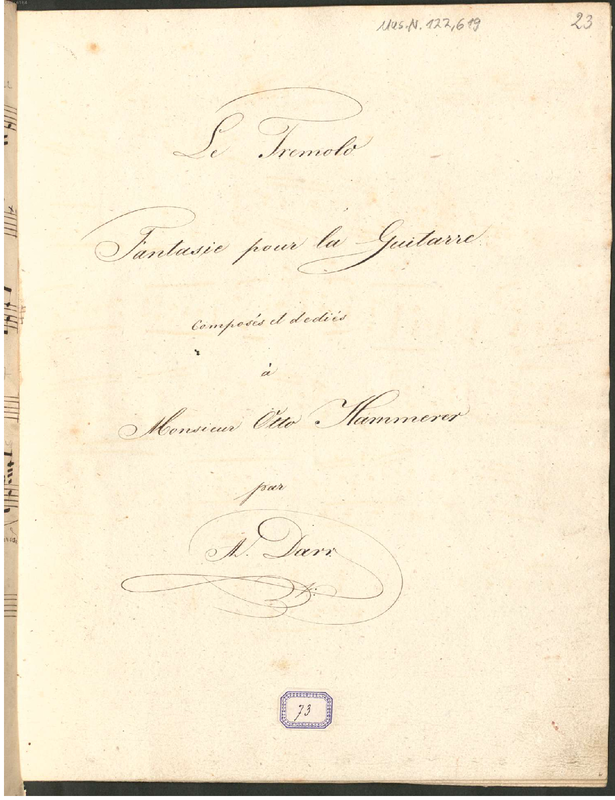 Mus.N. 122,619
23
Le Tremolo
Fantasie pour la Guitarre
composés et dediés
à
Monsieur Otto Hammerer
par
A. Darr.
73